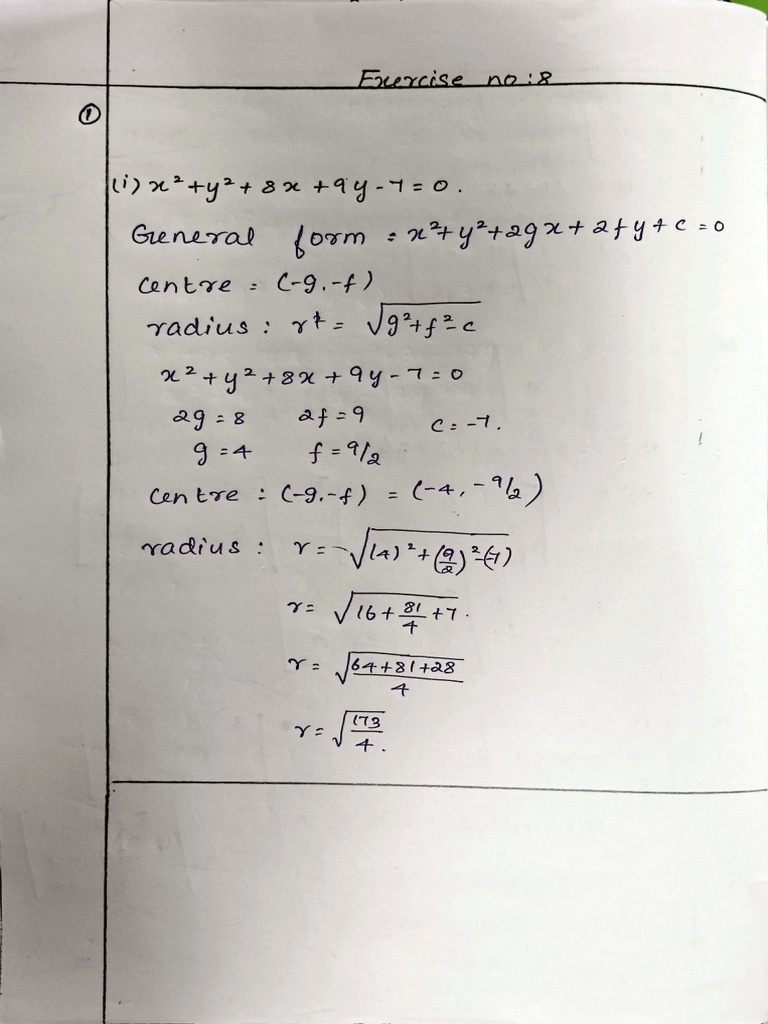 Exercise no:8
①
(i) x²+y²+8x+9y-7=0.
General form = x²+y²+2gx+2fy+c=0
centre = (-g,-f)
radius : r = √g²+f²-c
x²+y²+8x+9y-7=0
2g=8 2f=9 c=-7.
g=4 f=9/2
centre : (-g,-f) = (-4, -9/2)
radius : r = √(4)²+(9/2)²-(-7)
r= √16+81/4+7.
r= √64+81+28/4
r= √173/4.